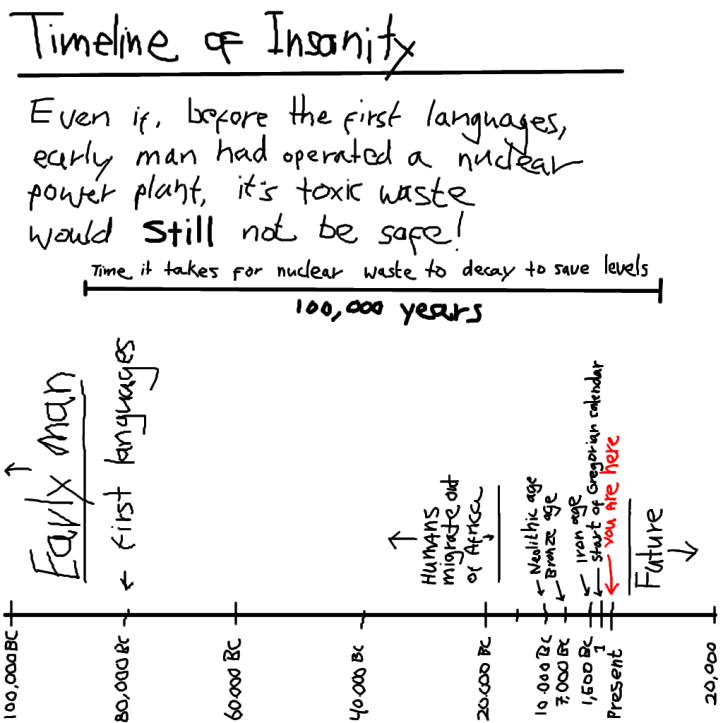 Timeline of Insanity
Even if, before the first languages,
early man had operated a nuclear
power plant, it's toxic waste
would still not be safe!
Time it takes for nuclear waste to decay to save levels
100,000 years
Early man
First languages
Humans
migrate out
of Africa
Neolithic age
Bronze age
Iron age
start of Gregorian calendar
You are here
Future
100,000 BC
80,000 BC
60.000 BC
40.000 BC
20.000 BC
10.000 BC
7.000 BC
1,500 BC
1
Present
20,000